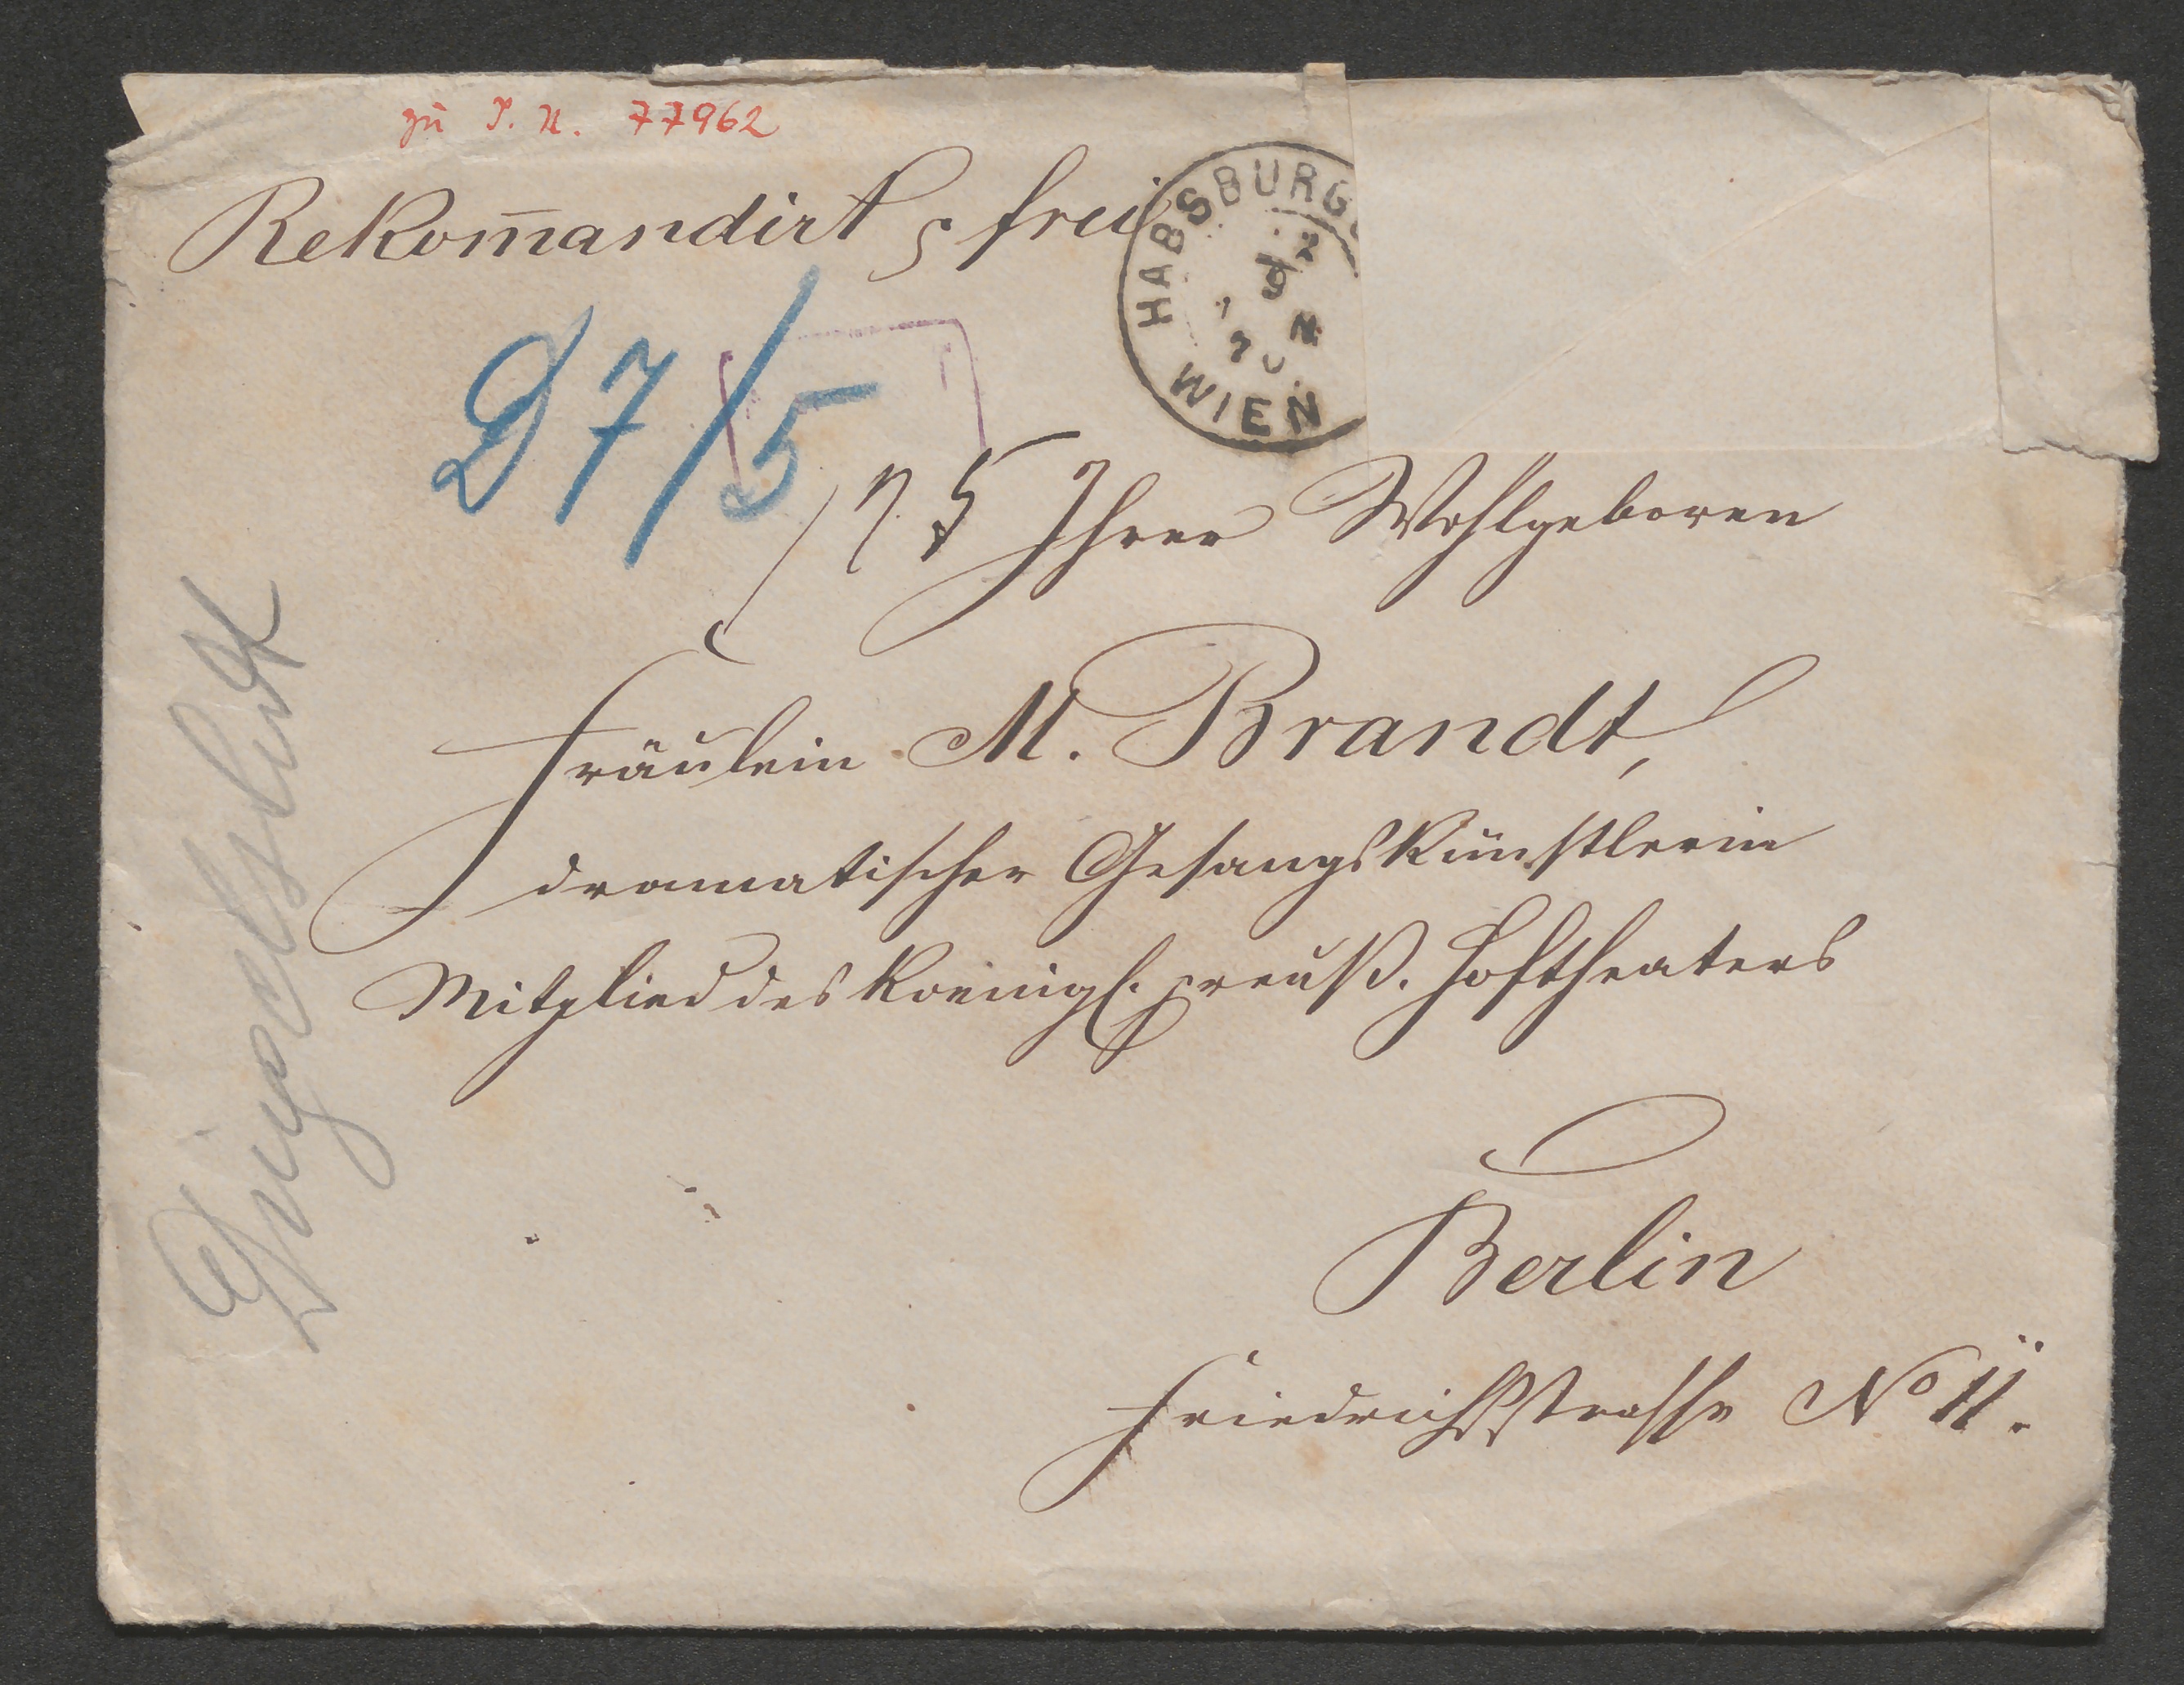 zu I. N. 77962
Rekom̅andirt, frei
HABSBURGG
WIEN
D 7/5
175
Ihrer Wohlgeboren
Fräulein M. Brandt,
dramatischer Gesangskünstlerin
Mitglied des koenigl. preuß. Hoftheaters
Berlin
Friedrichsstrasse No 11.
Dingelstedt